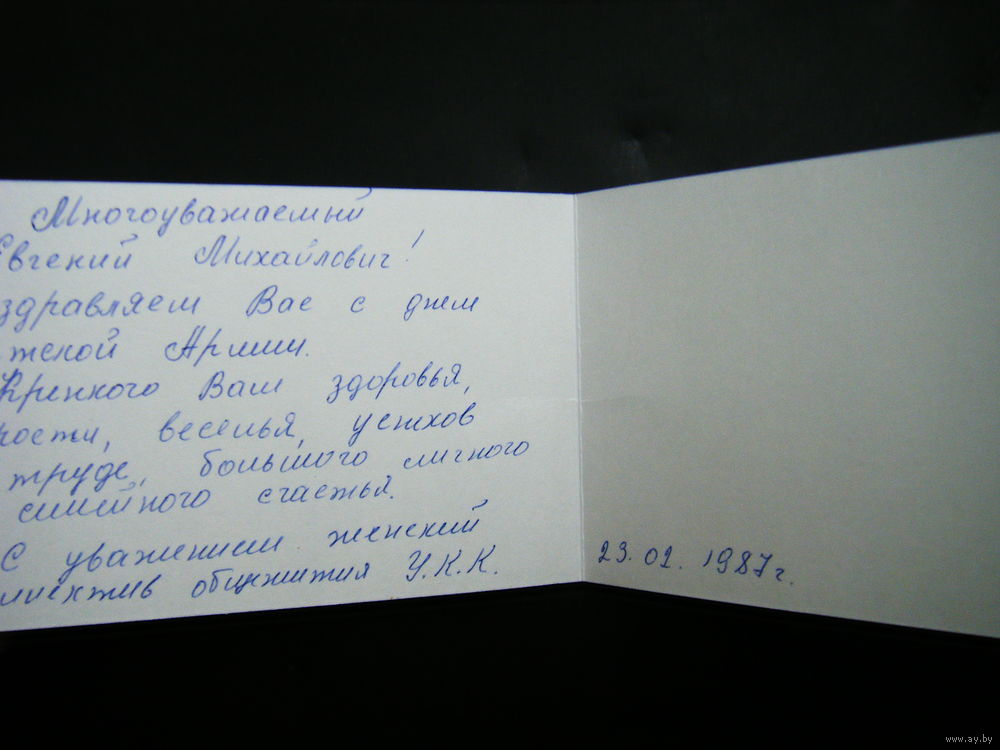 Многоуважаемый
Евгений Михайлович!
здравляем Вас с днем
тской Армии.
Крепкого Вам здоровья,
рости, веселья, успехов
труде, большого личного
семейного счастья.
С уважением женский
ллектив общежития У.К.К.
23.02.1987г.
www.ay.by